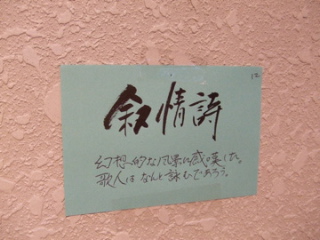 叙情詩
幻想的な風景に感嘆した。
歌人はなんと詠むであろう。